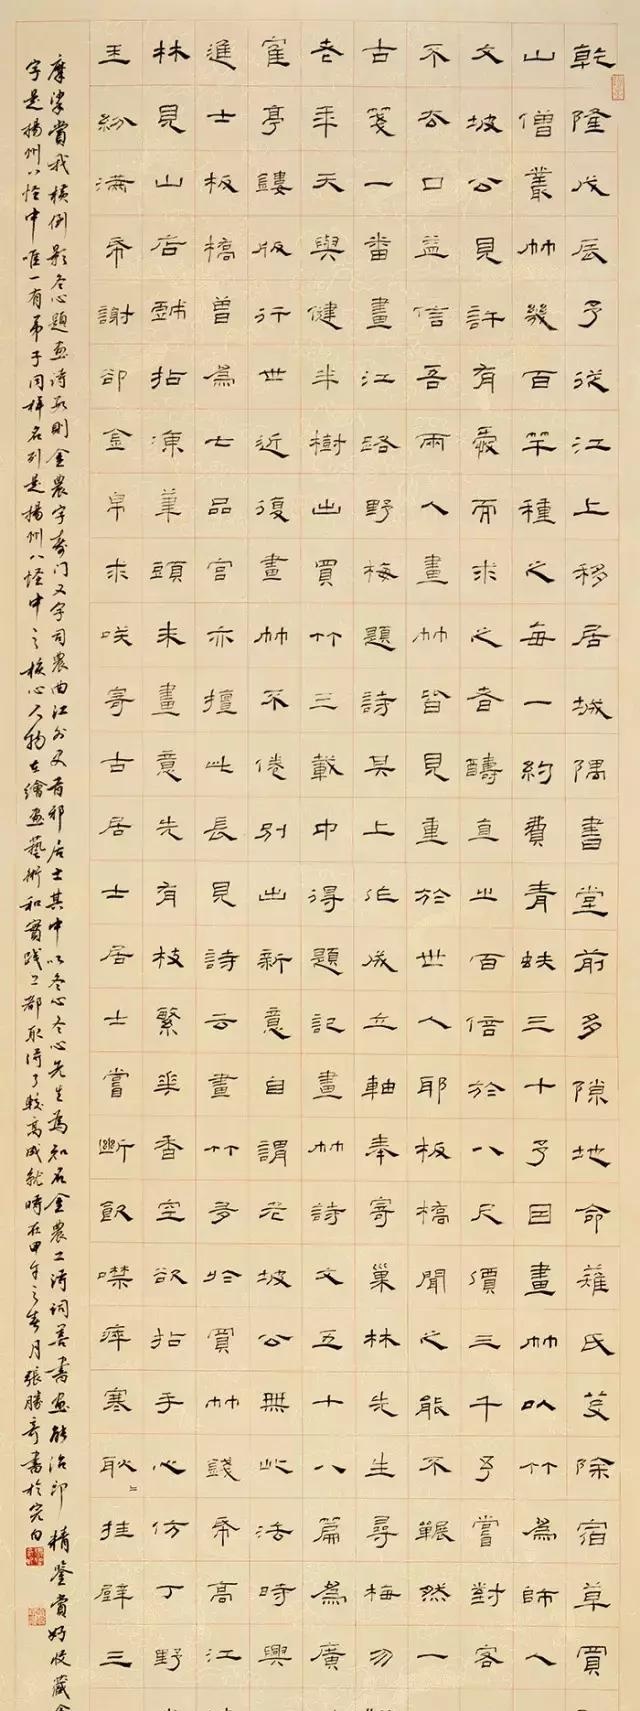 乾隆戊辰予從江上移居城隅書堂前多隙地命薙氏芟除宿草買
山僧叢竹幾百竿種之每一約費青蚨三十予因畫竹以竹為師人
文坡公見許有愛而求之者酬直之百倍於八尺價三千予嘗對客
不吝口益信吾兩人畫竹皆見重於世人耶板橋聞之能不囅然一
古箋一番畫江路野梅題詩其上成立軸奉寄巢林先生尋梅勿
老年天與健半樹出買竹三載中得題記畫竹詩文五十八篇為廣
寉亭鏤版行世近復畫竹不倦別出新意自謂老坡公無此法時興
進士板橋曾為七品官亦擅此長見詩云畫竹多於買竹錢帋高江
林見山店拈凍筆頭未畫意先有枝繁花香空欲拈手心仿丁野
王紛滿帋謝卻金帛求咲寄古居士居士嘗斷飲噤痒寒挂壁三
摩挲賞我橫倒影冬心題畫詩數則金農字壽門又字司農曲江外史昔耶居士其中以冬心冬心先生為知名金農工詩詞善書畫能治印精鑒賞好收藏金
字是揚州八怪中唯一有弟子同樣名列是揚州八怪中之核心人物在繪畫藝術和實踐上都取得了較高成就時在甲午之春月張勝奇書於